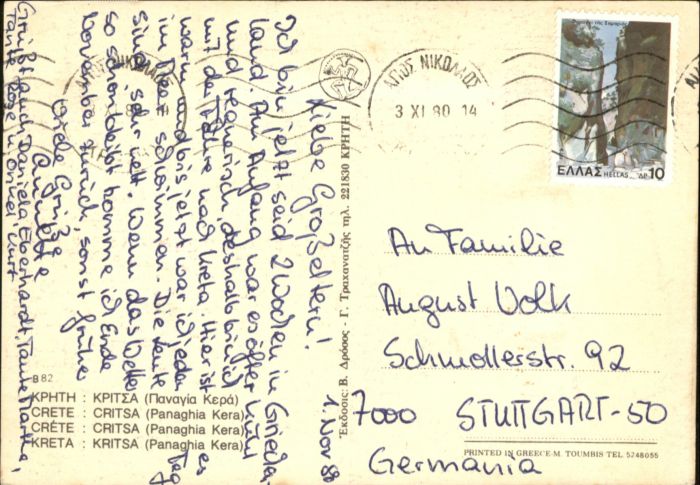 1. Nov 80
Liebe Großeltern!
Ich bin jetzt seid 2 Wochen in Griechen-
land. Am Anfang war es öfter kühl
und regnerisch, deshalb bin ich
mit der Fähre nach Kreta. Hier ist es
warm und bis jetzt war ich jeden Tag
im Meer schwimmen. Die Leute
sind sehr nett. Wenn das Wetter
so schön bleibt komme ich Ende
November zurück, sonst früher
Viele Grüße
Annette
Grüßt auch Daniela, Eberhardt, Tante Martha,
Tante Rose u. Onkel Kurt
ΑΓΙΟΣ ΝΙΚΟΛΑΟΣ
ΑΓΙΟΣ ΝΙΚΟΛΑΟΣ
3 XI 80 14
ΕΛΛΑΣ HELLAS ΔΡ. 10
An Familie
August Volk
Schmollerstr. 92
7000 STUTTGART-50
Germania
Έκδοσις: Β. Δρόσος - Γ. Τραχανατζής τηλ. 221830 ΚΡΗΤΗ
B 82
ΚΡΗΤΗ : ΚΡΙΤΣΑ (Παναγία Κερά)
CRETE : CRITSA (Panaghia Kera)
CRÈTE : CRITSA (Panaghia Kera)
KRETA : KRITSA (Panaghia Kera)
PRINTED IN GREECE-M. TOUMBIS TEL 5248055